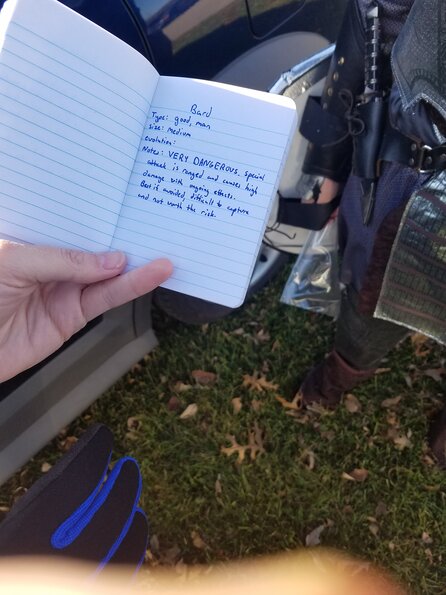 Bard
Type: good, man
Size: medium
evolution:
Notes: VERY DANGEROUS. Special
attack is ranged and causes high
damage with ongoing effects.
Best if avoided, difficult to capture
and not worth the risk.